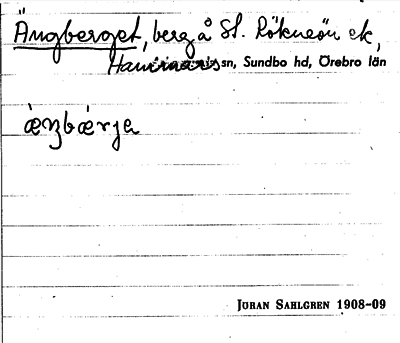 Ängberget, berg å St. Rökneön ek,
Hammars sn, Sundbo hd, Örebro län
ǽŋbǽrja
JÖRAN SAHLGREN 1908-09